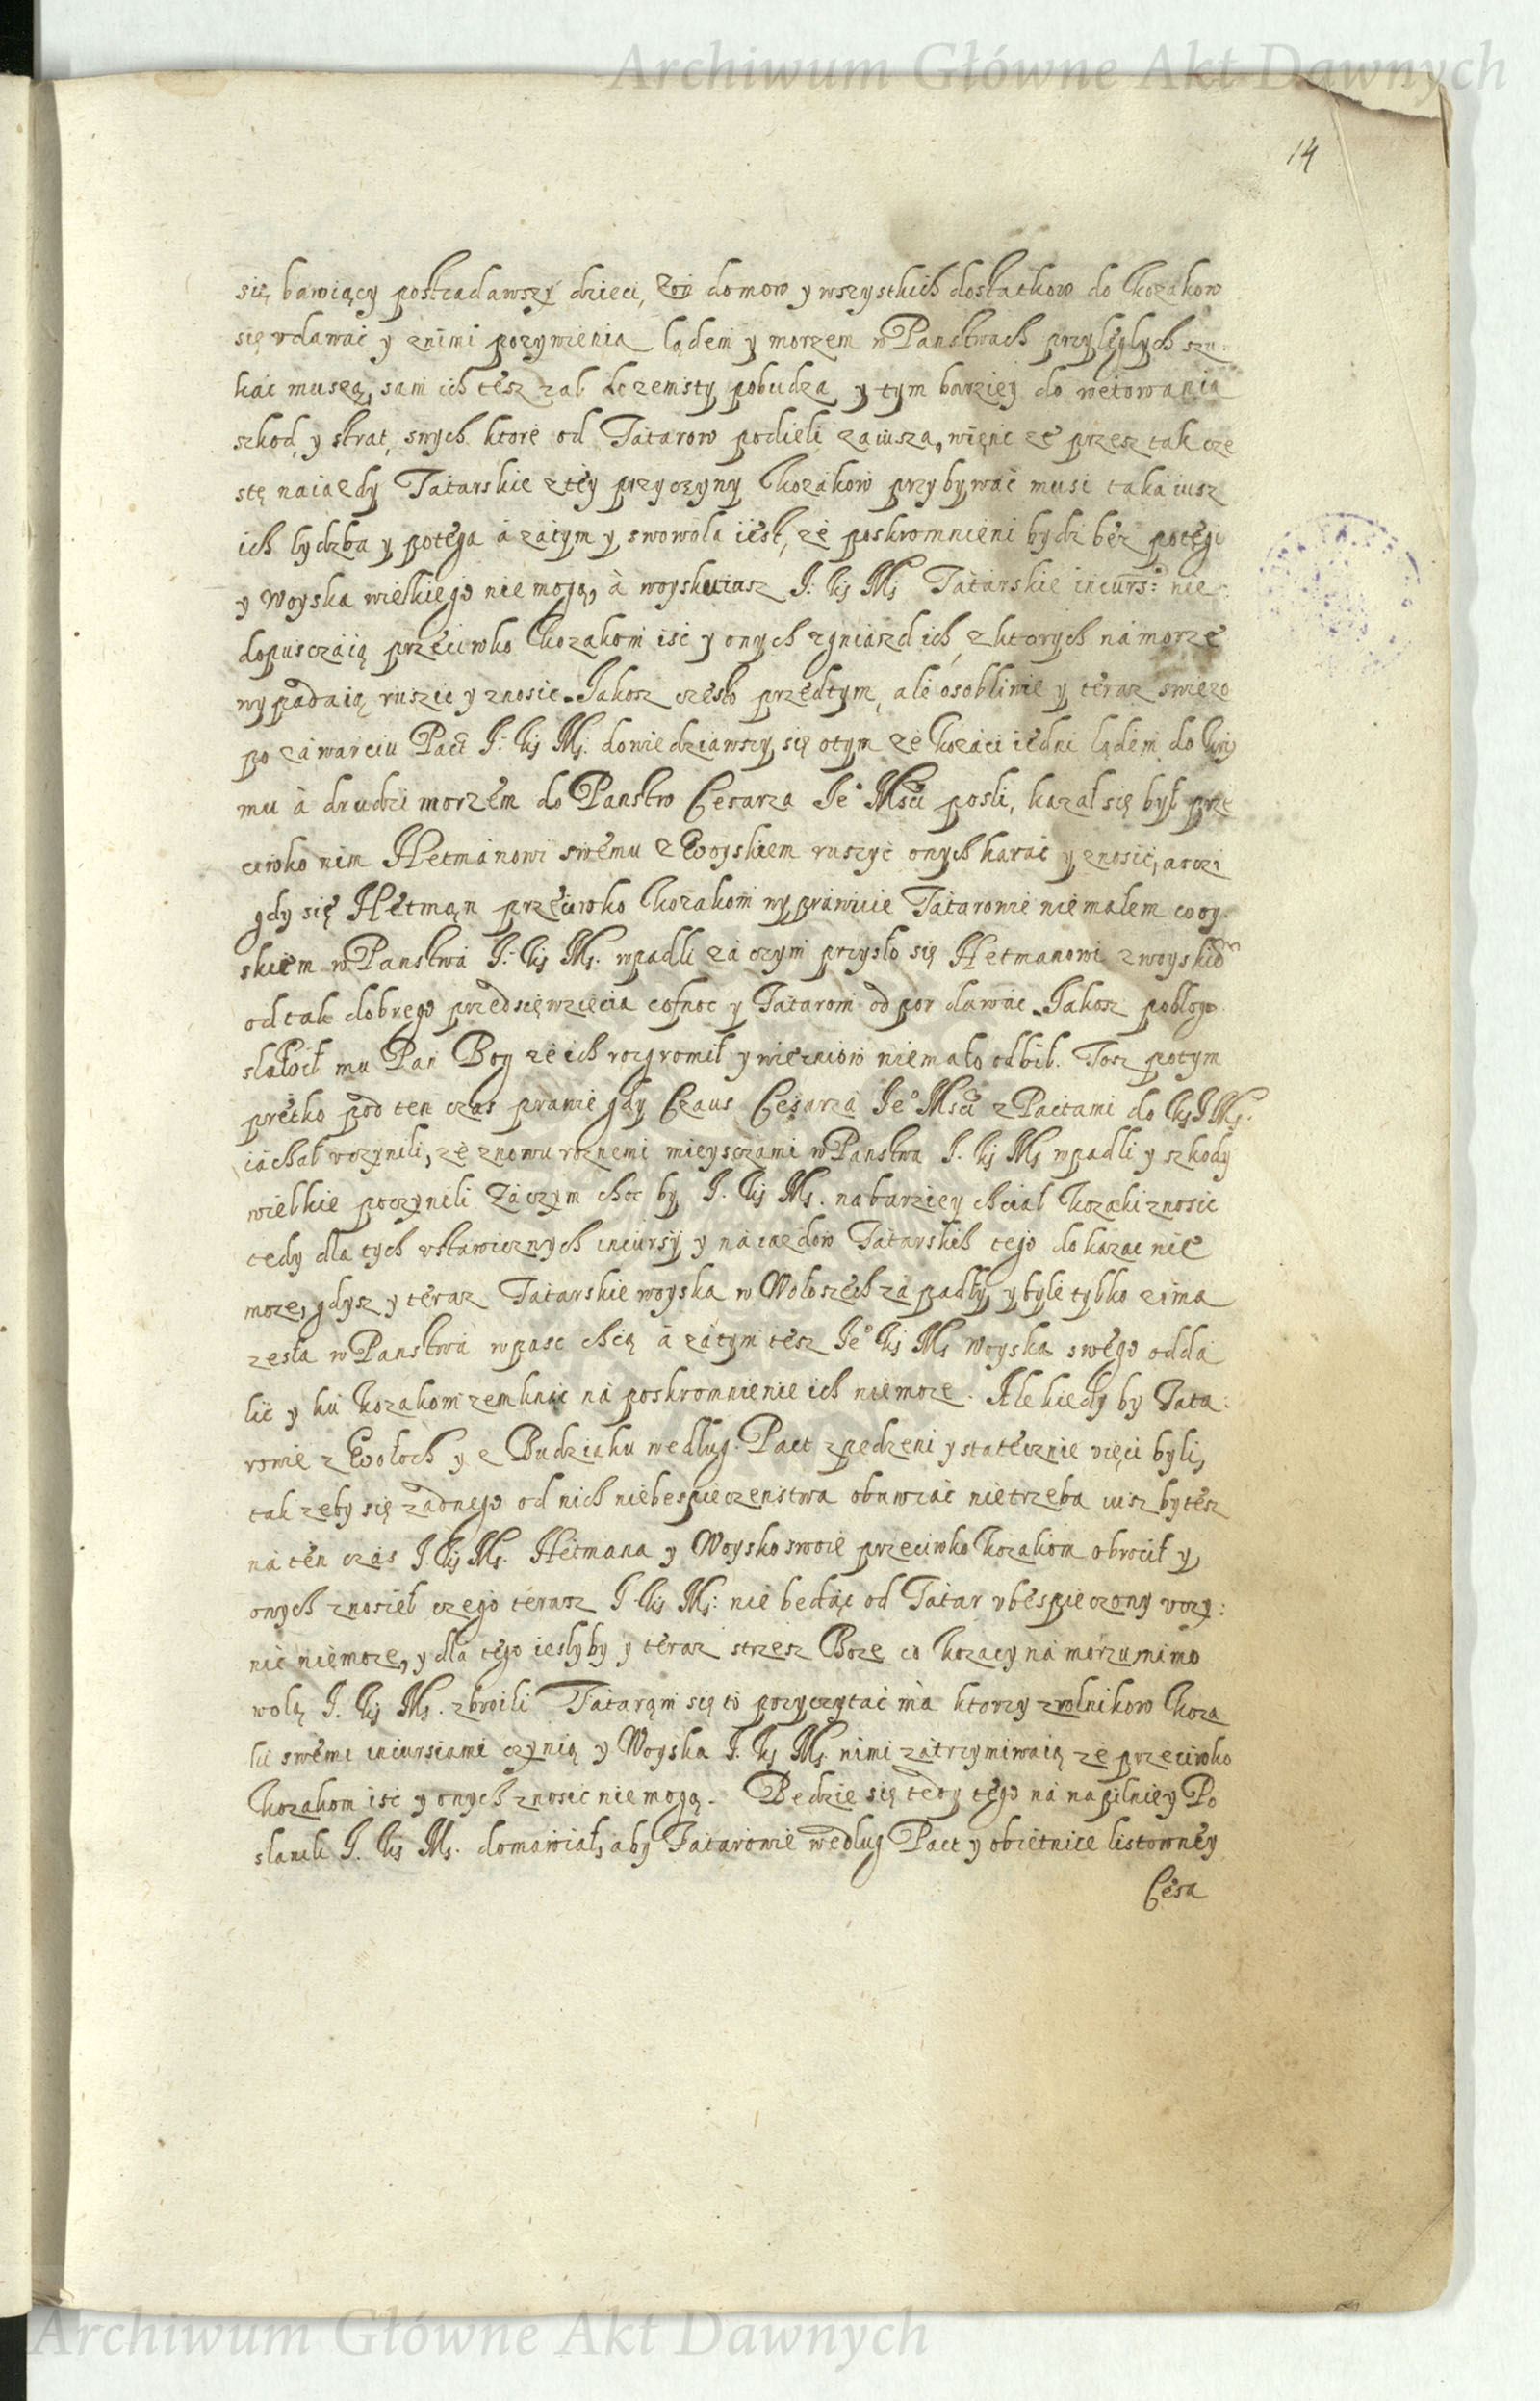 Archiwum Główne Akt Dawnych
14
się bawiący postradawszy dzieci, żon domow y wszystkich dostatkow do Kozakow
się vdawać y znimi pozywienia lądem y morzem w Panstwach przyległych szu-
kać muszą, sam ich tesz zal do zemsty pobudza y tym barziey do wetowania
szkod y strat swych ktore od Tatarow podieli zawsza, więnc ze przesz tak cze
stę naiazdy Tatarskie z tey przyczyny Kozakow przybywać musi taka iusz
ich lydzba y potęga a zatym y swowola iest, ze poskromnieni bydz bez potęgi
y Woyska wielkiego nie mogą, à woysku iusz J: Kij Mj Tatarskie incurs: nie
dopusczaią przeciwko Kozakom isc y onych z gniazd ich z ktorych na morze
wypadaią ruszic y znosic. Jakosz często przedtym, ale osobliwie y teraz swiezo
po zawarciu Pact J: Kij Mj. dowiedziawszy się o tym ze Kozaci iedni lądem do Kry
mu à drudzi morzem do Panstw Cesarza Je° Msci posli, kazał się był prze
ciwko nim Hetmanowi swemu z Woyskiem ruszyć onych karać y znosić, a oczi
gdy się Hetman przeciwko Kozakom wyprawuie Tatarowie niemałem woy-
skiem w Panstwa J: Kij Mj. wpadli za czym przysło się Hetmanowi z woyskiem
od tak dobrego przedsięwzięcia cofnoc y Tatarom odpor dawac. Jakosz pobłogo
sławił mu Pan Bog ze ich rozgromił y więzniow niemało odbił. Tosz potym
prętko pod ten czas prawie gdy Czaus Cesarza Je° Msci z Pactami do KJMj.
iachał vczynili, ze znowu roznemi mieysczami w Panstwa J. Kij Mj wpadli y szkody
wielkie poczynili Zaczym choc by J. Kij Mj. nabarziey chciał Kozaki znosic
tedy dla tych vstawicznych incursy y naiazdow Tatarskich tego dokazac nie
moze, gdysz y teraz Tatarskie woyska w Wołoszech zapadły y byle tylko zima
zesła w Panstwa wpasc chcą à zatym tesz Je° Kij Mj Woyska swego odda
lić y ku Kozakom zemknąc na poskromnienie ich nie moze. Ale kiedy by Tata:
rowie z Wołoch y z Budziaku według Pact zpędzeni y statecznie vięci byli,
tak zeby się zadnego od nich niebespieczenstwa obawiać nie trzeba iusz by tesz
na ten czas J Kij Mj. Hetmana y Woysko swoie przeciwko Kozakom obrocił y
onych znosieł czego terasz J. Kij Mj: nie będąc od Tatar vbespieczony vczy:
nić nie moze, y dla tego iesliby y teraz strzesz Boze co Kozacy na morzu mimo
wolą J. Kij Mj. zbroili Tatarąm się to przyczytać ma ktorzy z rolnikow Koza
ki swemi incursiami czynią y Woyska J. Kij Mj. nimi zatrzymiwaią ze przeciwko
Kozakom isc y onych znosić nie mogą. Będzie się tedy tego na napilniey Po
slanik J. Kij Mj. domawiał, aby Tatarowie według Pact y obietnice listowney
Cesa
Archiwum Główne Akt Dawnych